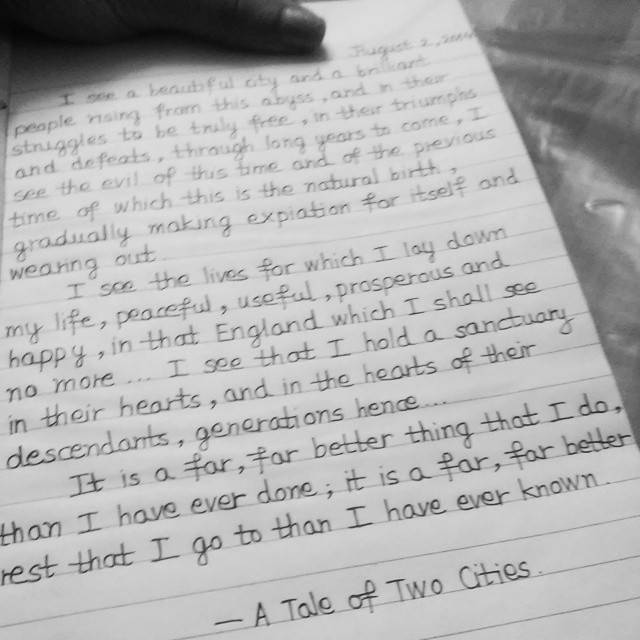 August 2, 2004
I see a beautiful city and a brilliant
people rising from this abyss, and in their
struggles to be truly free, in their triumphs
and defeats, through long years to come, I
see the evil of this time and of the previous
time of which this is the natural birth,
gradually making expiation for itself and
wearing out.
I see the lives for which I lay down
my life, peaceful, useful, prosperous and
happy, in that England which I shall see
no more ... I see that I hold a sanctuary
in their hearts, and in the hearts of their
descendants, generations hence...
It is a far, far better thing that I do,
than I have ever done; it is a far, far better
rest that I go to than I have ever known.
— A Tale of Two Cities.